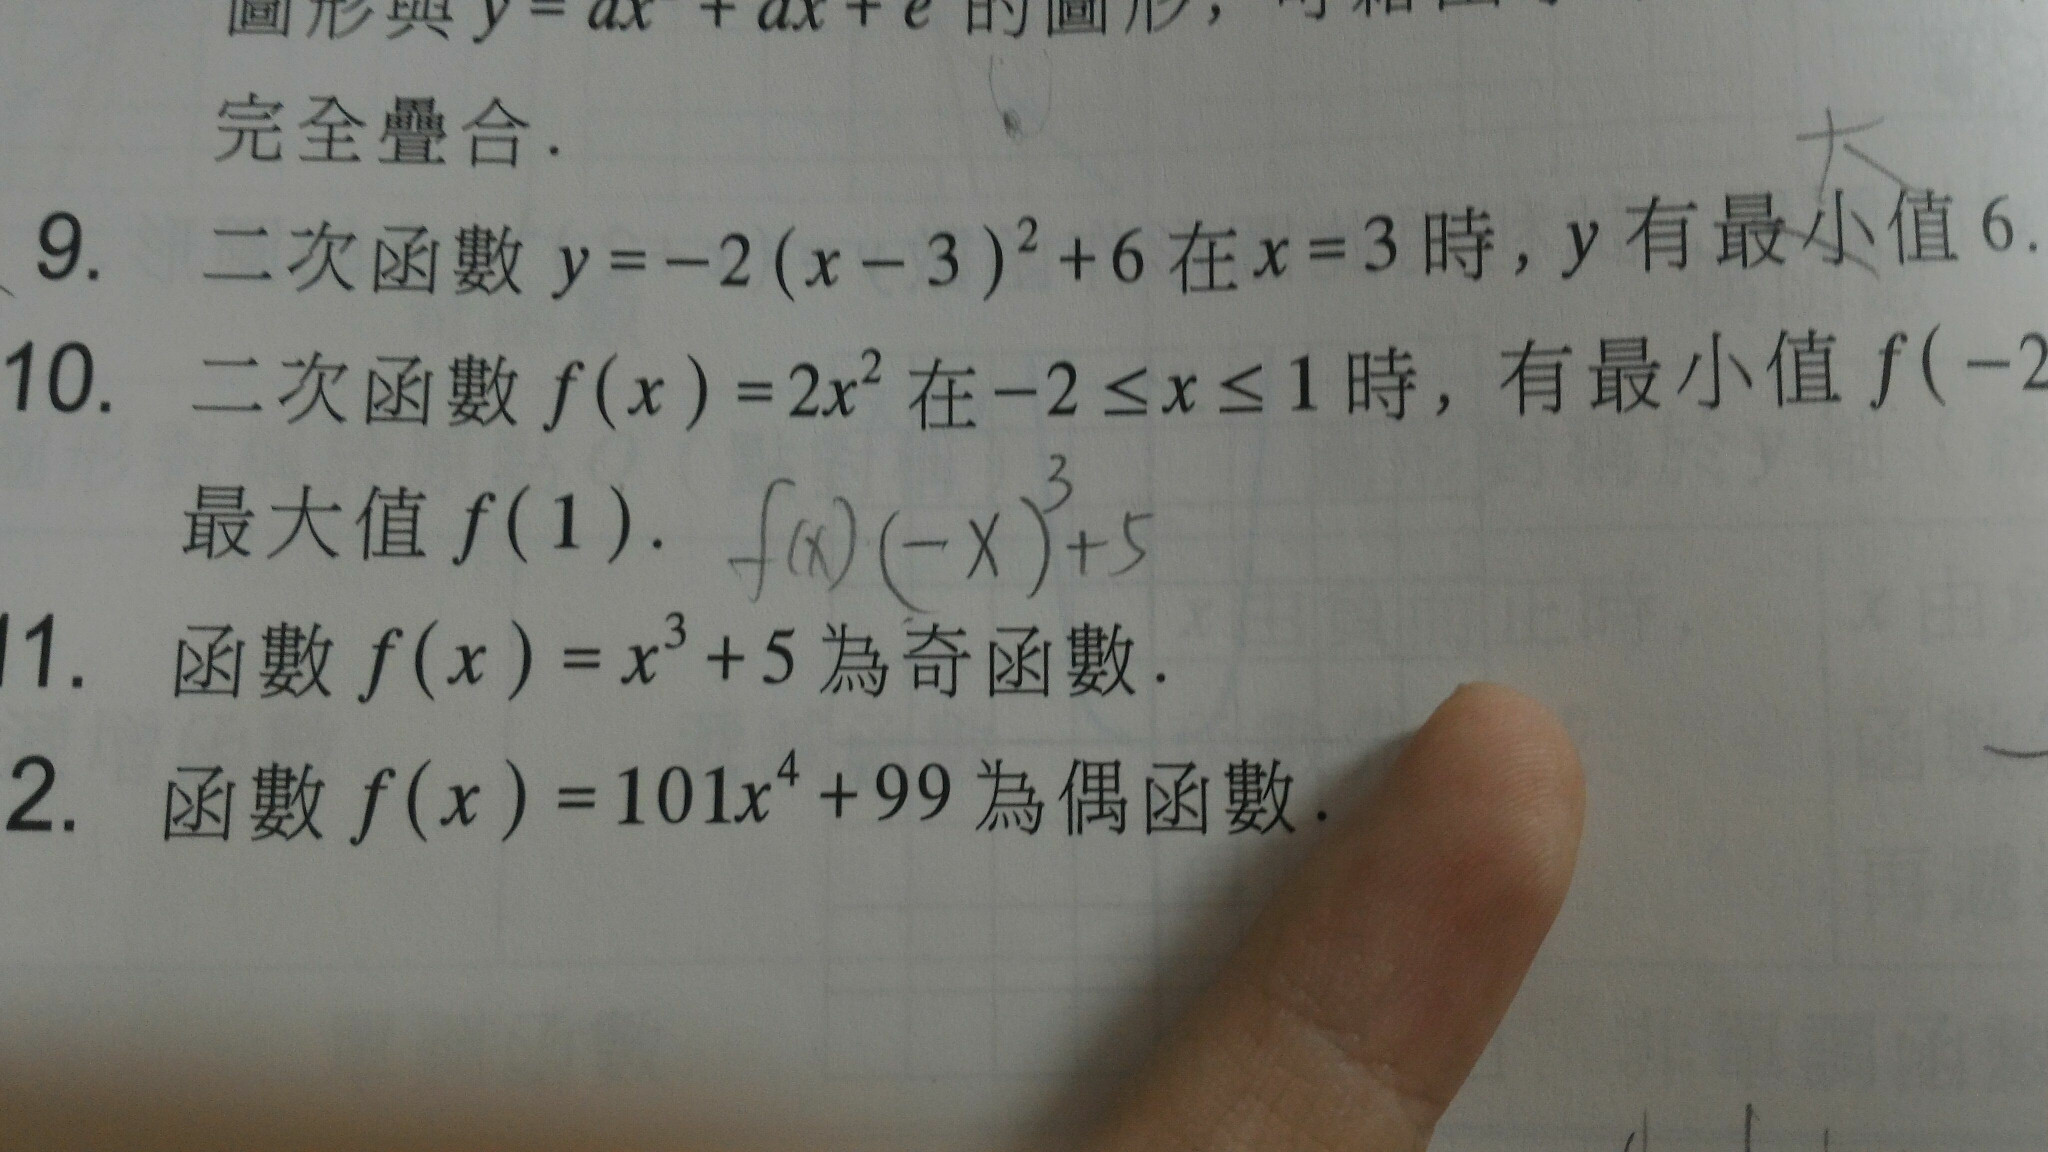 完全疊合.
大
9. 二次函數 y = −2 ( x − 3 )² + 6 在 x = 3 時, y 有最小值 6.
10. 二次函數 f ( x ) = 2x² 在 −2 ≤ x ≤ 1 時, 有最小值 f ( −2
最大值 f ( 1 ). f(x) (−x)³+5
11. 函數 f ( x ) = x³ + 5 為奇函數.
2. 函數 f ( x ) = 101x⁴ + 99 為偶函數.